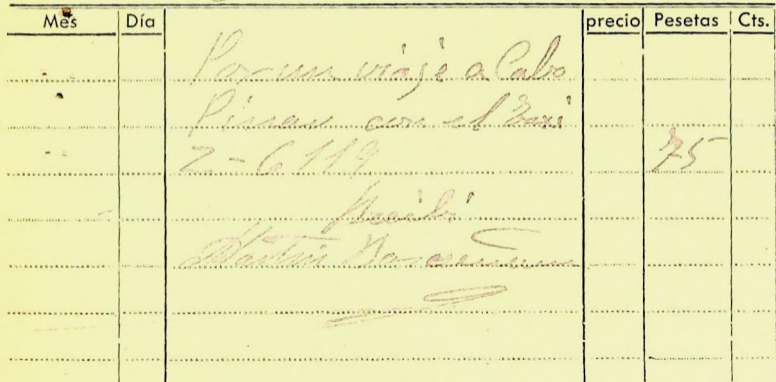 Mes Día precio Pesetas Cts.
Por un viaje a Cabo
Pinar con el Taxi
Z-6119 75
Recibi
Martin